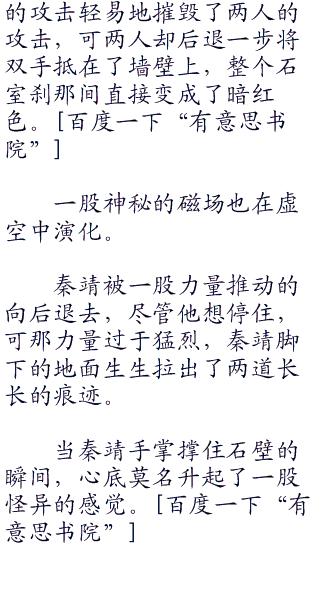 的攻击轻易地摧毁了两人的
攻击，可两人却后退一步将
双手抵在了墙壁上，整个石
室刹那间直接变成了暗红
色。[百度一下“有意思书
院”]
一股神秘的磁场也在虚
空中演化。
秦靖被一股力量推动的
向后退去，尽管他想停住，
可那力量过于猛烈，秦靖脚
下的地面生生拉出了两道长
长的痕迹。
当秦靖手掌撑住石壁的
瞬间，心底莫名升起了一股
怪异的感觉。[百度一下“有
意思书院”]